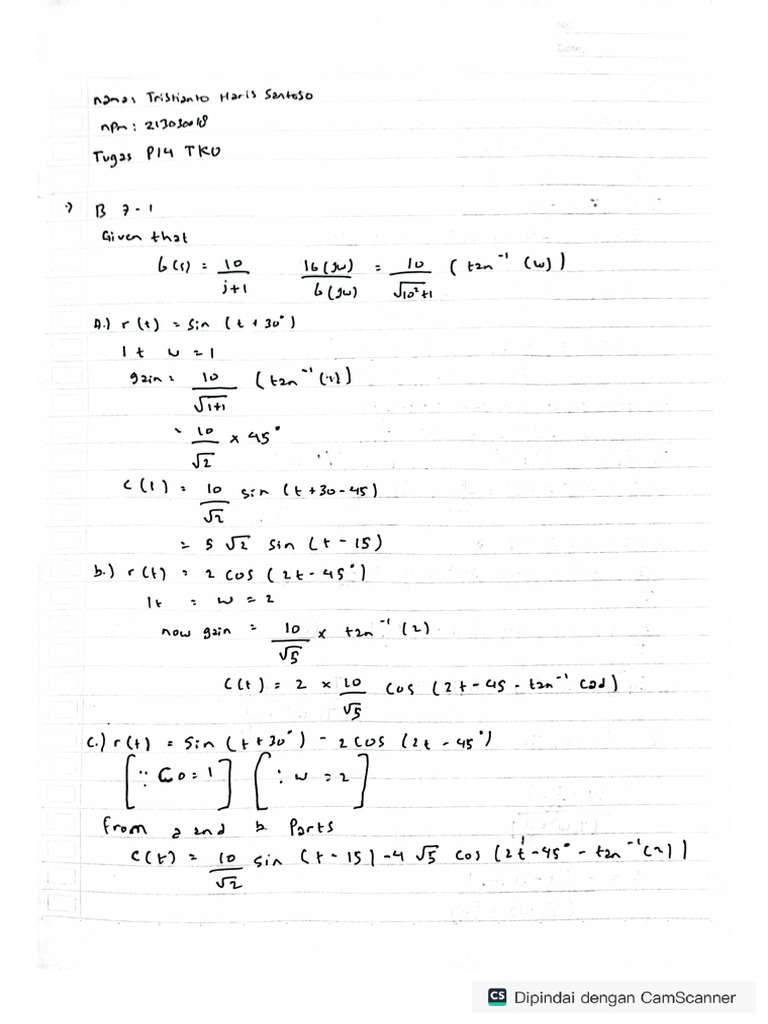 No.
Date.
nama: Tristianto Haris Santoso
npm: 213030018
Tugas P14 TKO
B 7-1
Given that
G(s) = 10/j+1   |G(jw)/G(jw) = 10/√10²+1 (tan⁻¹ (w))
A.) r(t) = sin (t + 30°)
It w = 1
gain = 10/√1+1 (tan⁻¹(1))
= 10/√2 × 45°
c(t) = 10/√2 sin (t+30-45)
= 5 √2 sin (t - 15)
b.) r(t) = 2 cos (2t - 45°)
It = w = 2
now gain = 10/√5 × tan⁻¹(2)
C(t) = 2 × 10/√5 cos (2t - 45 - tan⁻¹ cad)
C.) r(t) = sin (t + 30°) - 2 cos (2t - 45°)
[∵ Co = 1] [∵ w = 2]
from a and b Parts
C(t) = 10/√2 sin (t - 15) - 4 √5 cos (2t - 45° - tan⁻¹(2))
CS Dipindai dengan CamScanner